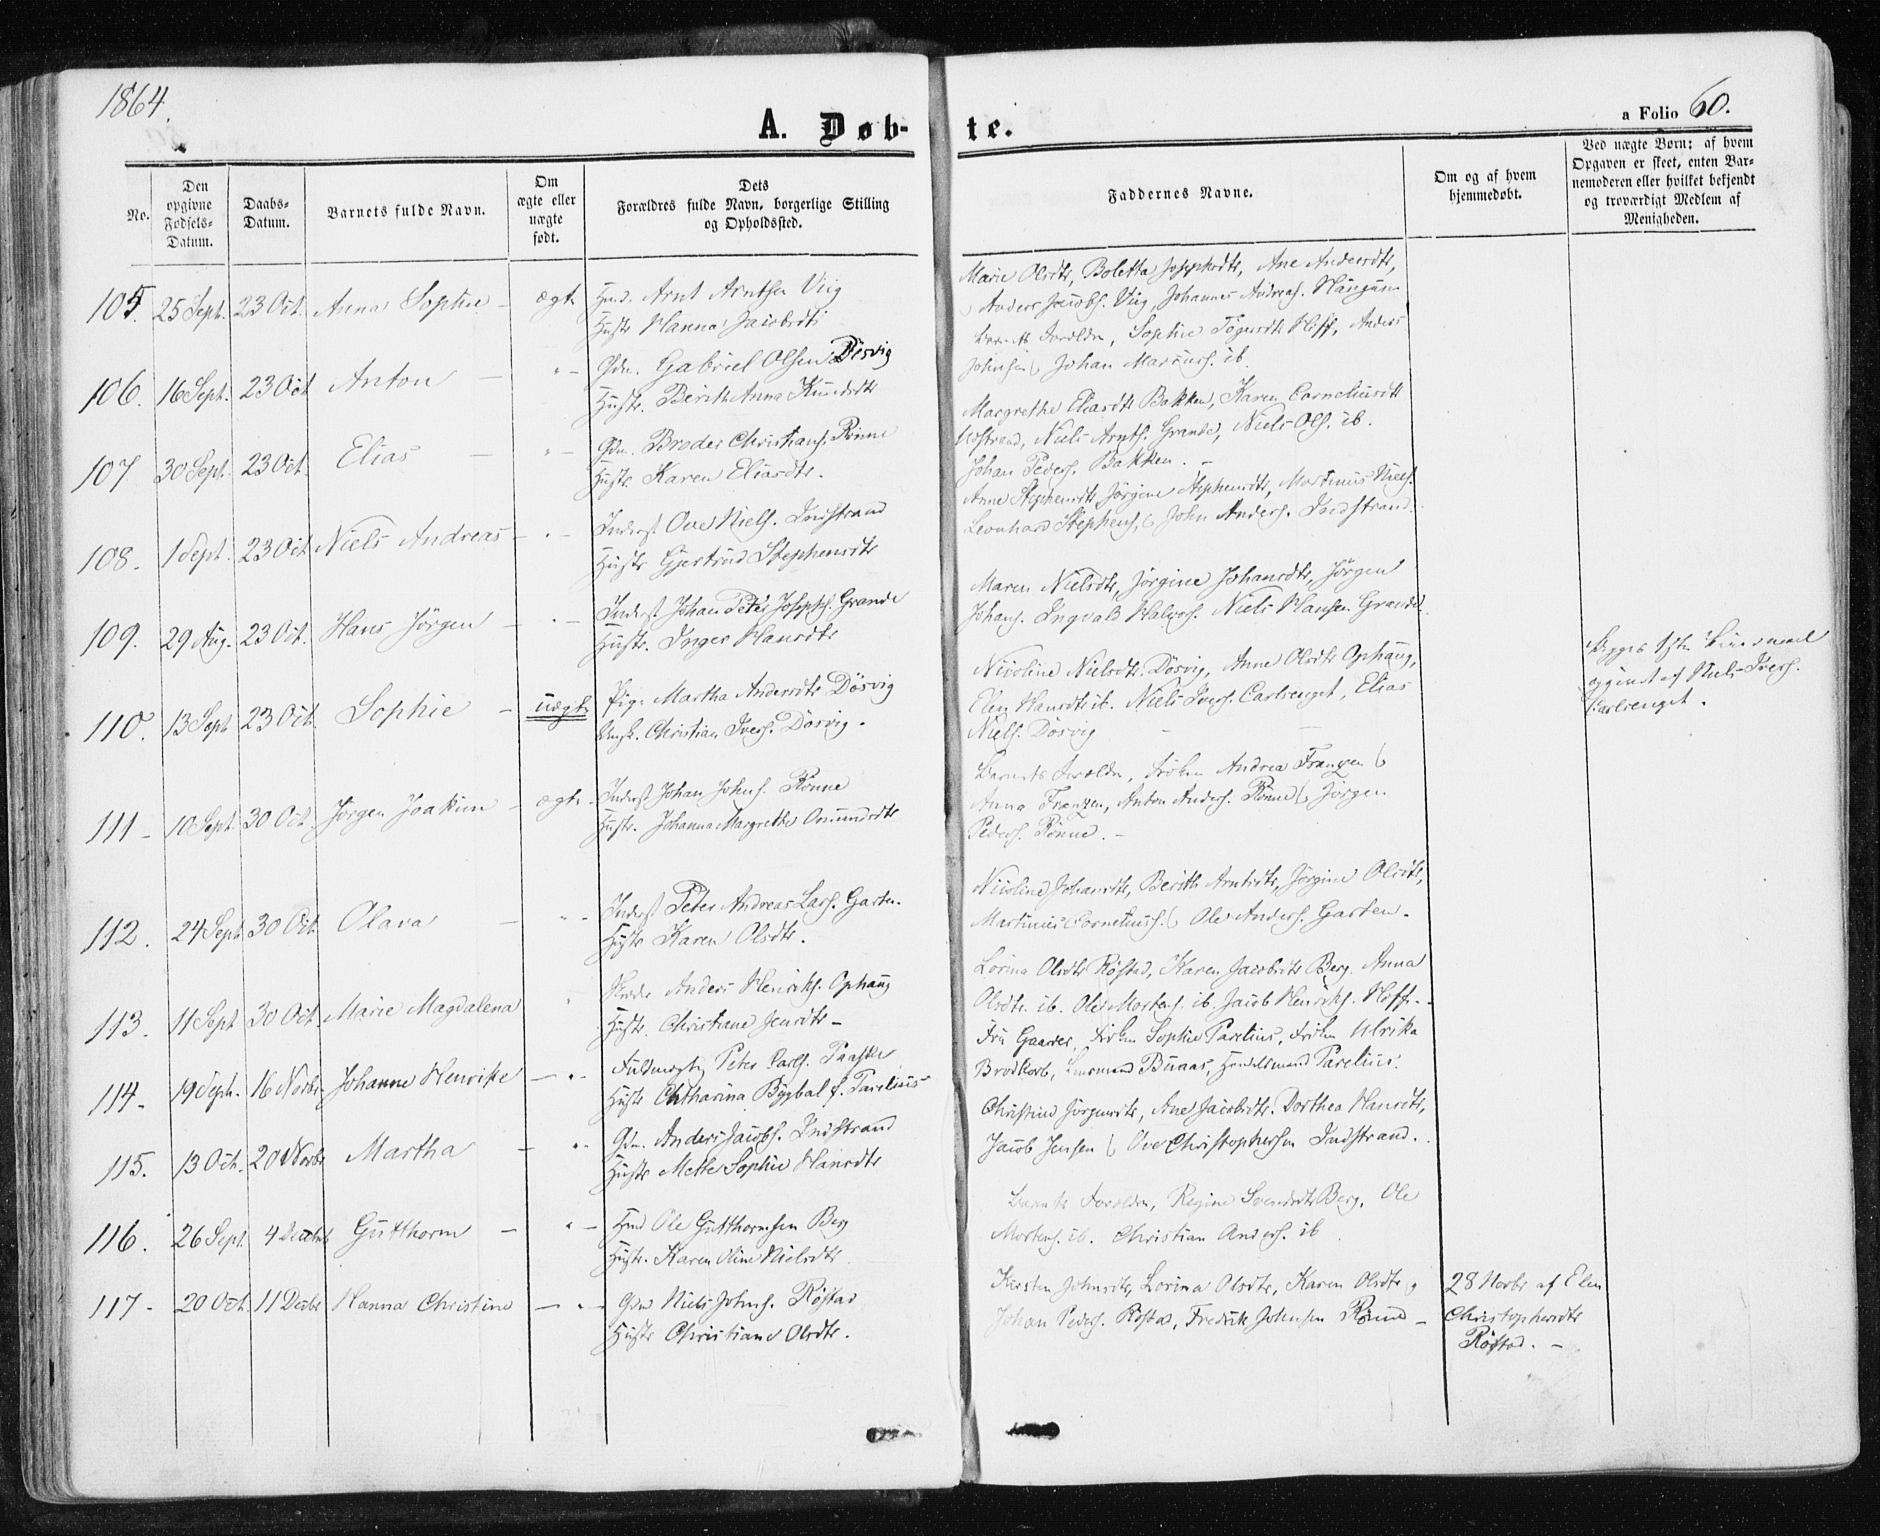 1864.
A. Døb-
te.
a Folio 60.
No.
Den
opgivne
Fødsels-
Datum.
Daabs-
Datum.
Barnets fulde Navn.
Om
ægte eller
uægte
født.
Dets
Forældres fulde Navn, borgerlige Stilling
og Opholdssted.
Faddernes Navne.
Om og af hvem
hjemmedøbt.
Ved uægte Børn: af hvem
Opgaven er skeet, enten Bar-
nemoderen eller hvilket bekjendt
og troværdigt Medlem af
Menigheden.
105. 25 Sept. 23 Oct. Anna Sophie - ægte Arnt Arntsen Viig
Hustr Hanna Jacobsdt
Marie Olsdtr, Boletta Josephsdtr, Ane Andersdtr,
Anders Jacobs. Viig, Johannes Andreas. Haugum
106. 16 Sept. 23 Oct Anton - " - Gdm. Gabriel Olsen Døsvig
Hustr. Berith Anna Knudsdtr
Barnets Forældre, Sophie Hoff, Anders
Johnsen, Johan Marcus. ib.
107 30 Sept. 23 Oct. Elias - " - Gdm. Broder Christians. Rønne
Hustr. Karen Eliasdtr.
Margrethe Eliasdtr Bakken, Karen Corneliusdtr
Niels Arnts. Grande, Niels Ols. ib.
Johan Peders. Bakken. -
108. 1 Sept. 23 Oct Niels Andreas - " - Inderst Ove Niels. Indstrand
Hustr Gjertrud Stephensdtr
Anne Stephensdtr Jørgine Stephensdtr, Mortinus Niels.
Leonhard Stephens, John Anders. Indstrand.
109. 29 Aug. 23 Oct. Hans Jørgen - " - Inderst Johan Peter Josephs. Grande
Hustr. Inger Hansdtr
Maren Nielsdtr, Jørgine Johansdtr, Jørgen
Johans. Ingvald Halvors. Niels Hansen Grande.
110. 13 Sept 23 Oct. Sophie - uægte Pige Martha Andersdtr Døsvig
Ungk. Christian Ivers. Døsvig.
Nicoline Nielsdtr. Døsvig, Anne Olsdtr Ophaug,
Elen Hansdtr ib. Niels Ivers. Carlsenget, Elias
Niels. Døsvig
opgivet af Niels Ivers.
Carlsenget.
111 - 10 Sept 30 Oct. Jørgen Joakim - ægte - Inderst Johan Johns. Rønne
Hustr. Johanna Margrethe Omundsdtr
Barnets Forældre, Frøken Andrea Franzen
Anna Franzen, Anton Anders. Rønne, Jørgen
Peders. Rønne. -
112. 24 Sept. 30 Oct. Olava - " - Inderst Peter Andreas Lars. Garten.
Hustr Karen Olsdtr.
Nicoline Johansdtr, Berith Arntsdtr, Jørgine Olsdtr,
Martinus Cornelius. Ole Anders. Garten.
113. 11 Sept 30 Oct. Marie Magdalena " Anders Henriks. Ophaug
Hustr. Christiane Jensdtr -
Lorina Olsdtr Røstad, Karen Jacobsdtr Berg. Anna
Olsdtr. ib. Ole Mortens. ib. Jacob Henriks. Hoff. -
114. 19 Septr. 16 Novbr Johanne Henrikke - " - Fuldmægtig Peter Carls. Paaske
Hustr Chatharina Bygbal f. Parelius
Fru Gaarer, Frøken Sophie Parelius, Frøken Ulrika
Brodkorb, Lensmand Bunæs, Handelsmand Parelius.
115. 13 Oct. 20 Novbr Martha - " - Gdm. Anders Jacobs. Indstrand
Hustr Mette Sophie Hansdtr
Christine Jørgensdtr, Ane Jacobsdtr. Dorthea Hansdtr,
Jacob Jensen, Ove Christophersen Indstrand.
116. 26 Sept. 4 Decbr Gutthorm - " - Hmd Ole Gutthormsen Berg
Hustr. Karen Oline Nielsdtr
Barnets Forældre, Regine Svendsdtr Berg, Ole
Mortens. ib. Christian Anders. ib.
117 - 20 Oct. 11 Decbr Hanna Christine - " - Gdm Niels Johns. Røstad
Hustr Christiane Olsdtr.
Kirsten Johnsdtr, Lorina Olsdtr, Karen Olsdtr
Johan Peders. Røstad, Fredrik Johnsen Rønne -
28 Novbr af Elen
Christophersdtr
Røstad. -